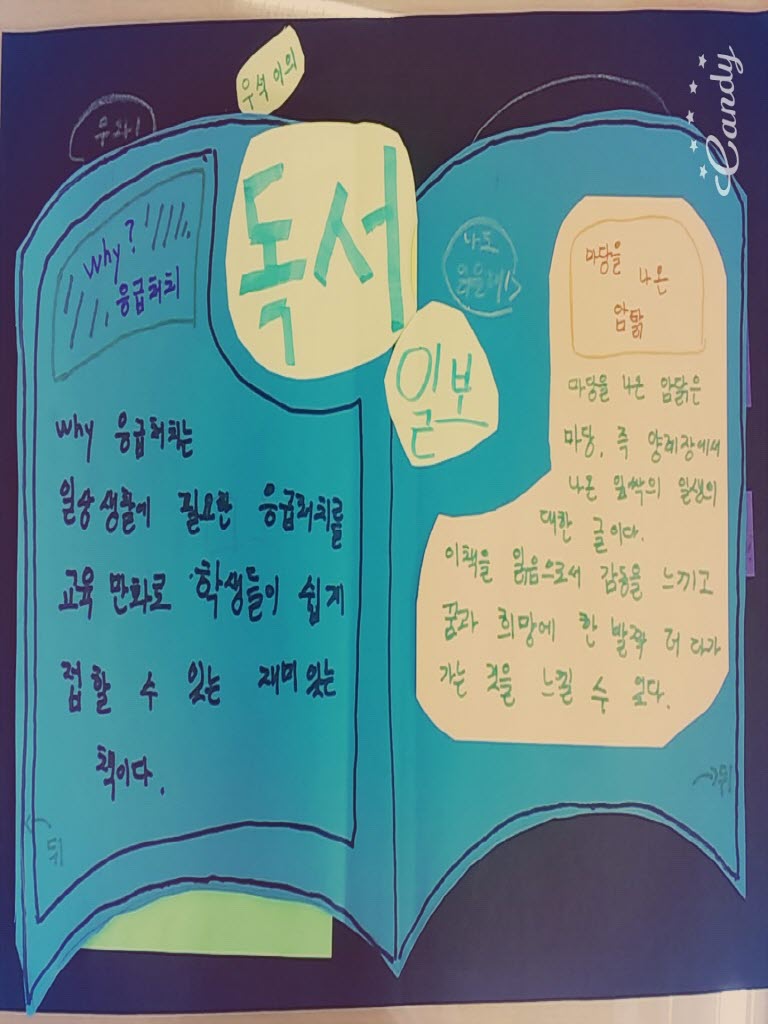 우석이의
독서
일보
Why?
응급처치
Why 응급처치는
일상생활에 필요한 응급처치를
교육 만화로 학생들이 쉽게
접할 수 있는 재미있는
책이다.
뒤
나도
마당을
나온
암탉
마당을 나온 암탉은
마당, 즉 양계장에서
나온 잎싹의 일생의
대한 글이다.
이책을 읽음으로서 감동을 느끼고
꿈과 희망에 한 발짝 더 다가
가는 것을 느낄 수 있다.
뒤
Candy